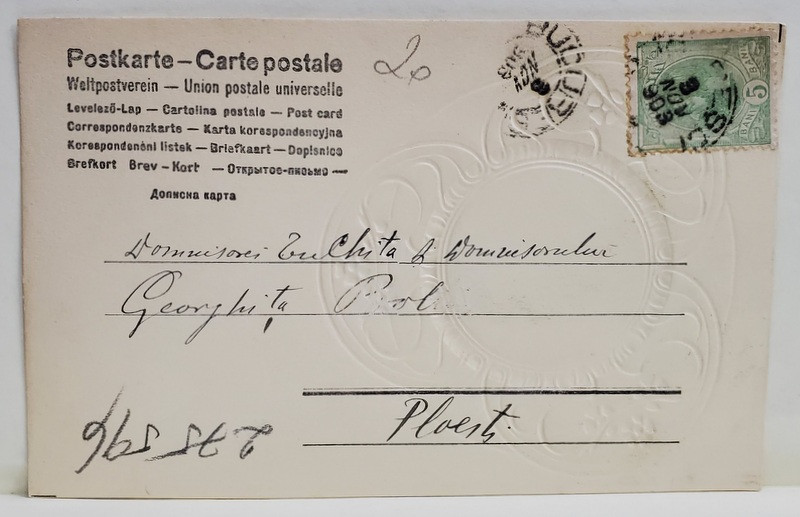 Postkarte – Carte postale
Weltpostverein — Union postale universelle
Levelező-Lap — Cartolina postale — Post card
Correspondenzkarte — Karta korespondencyjna
Korespondenční lístek — Briefkaart — Dopisnica
Brefkort Brev-Kort — Открытое-письмо —
Дописна карта
20
3 NOV 903
5 BANI
Domnisoarei & Domnisorului
Georghita
Ploesti